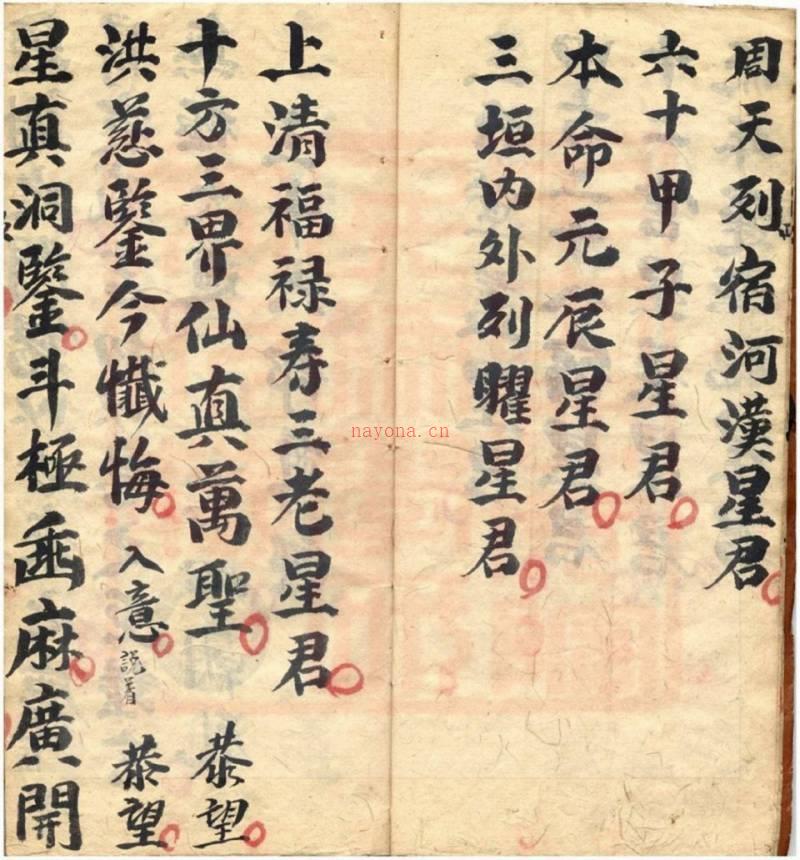 周天列宿河漢星君
六十甲子星君
本命元辰星君
三垣內外列曜星君
上清福禄寿三老星君
十方三界仙真萬聖 恭望
洪慈鑒今懺悔 入意 説着 恭望
星真洞鑒斗極垂麻廣開
nayona.cn